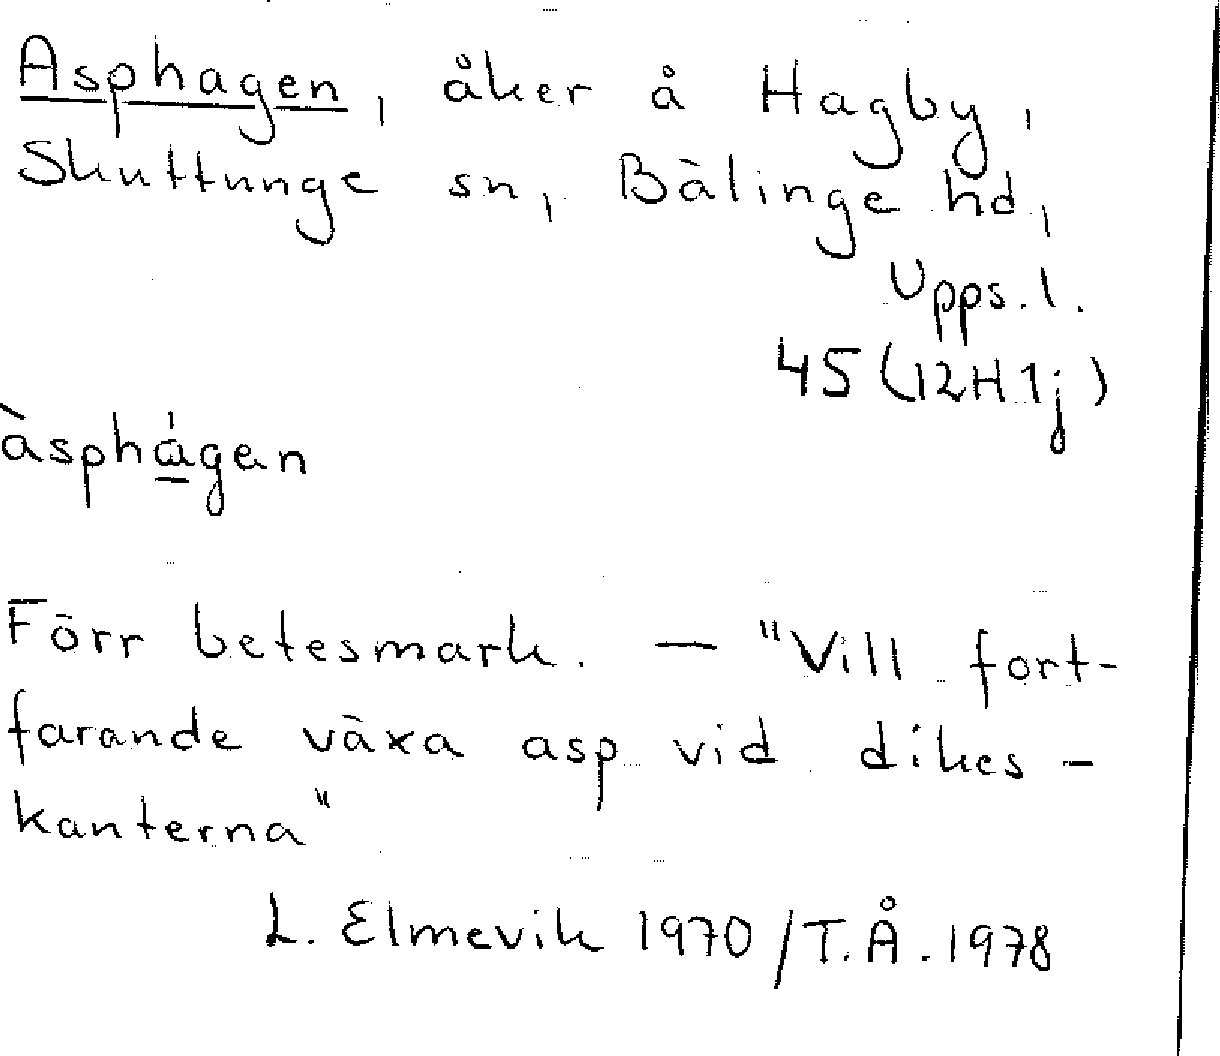 Asphagen, åker å Hagby,
Skuttunge sn, Bälinge hd,
Upps. l.
45 (12H 1j)
àsphágan
Förr betesmark. — "Vill fort-
farande växa asp vid dikes-
kanterna"
L. Elmevik 1970/T.Å. 1978